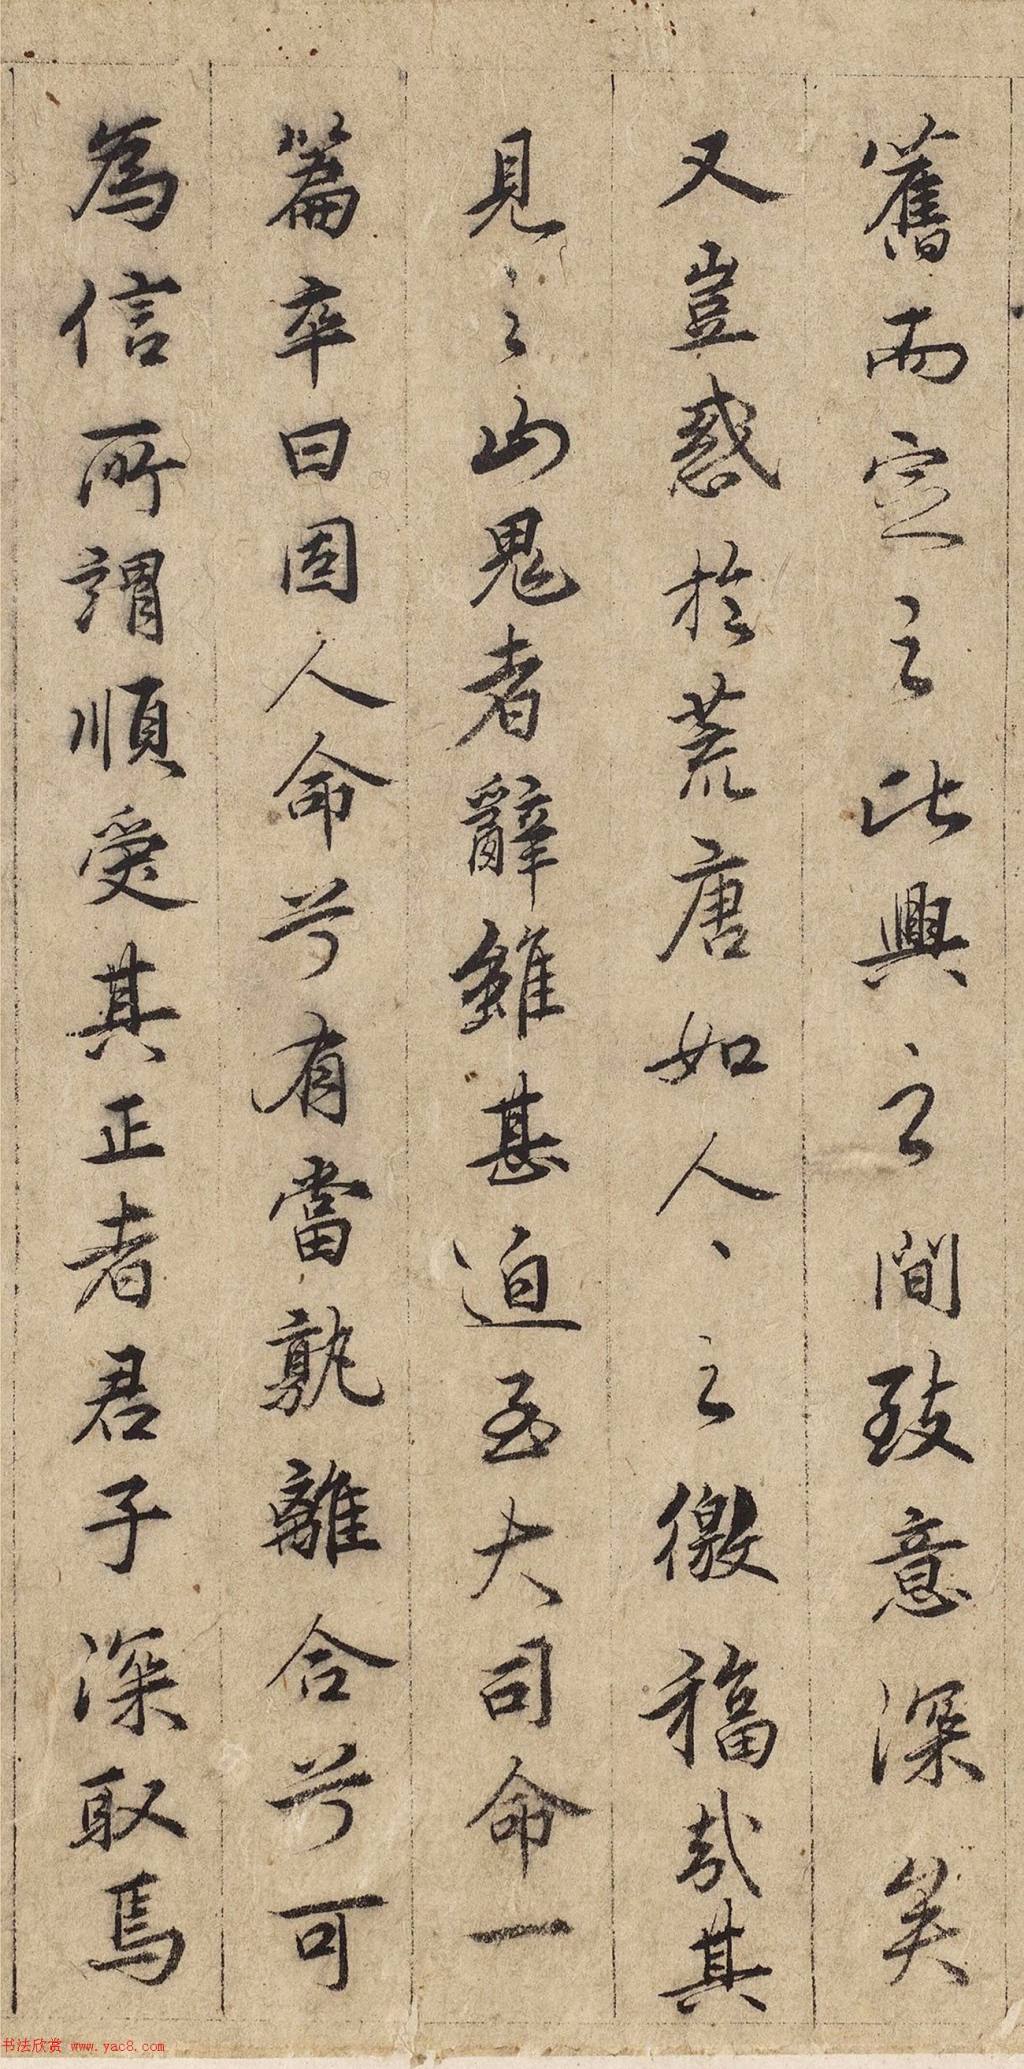 舊而定之比興之間致意深矣
又豈惑於荒唐如人人之徼福哉其
見之山鬼者辭雖甚迫至大司命一
篇卒曰固人命兮有當孰離合兮可
為信所謂順受其正者君子深取焉
书法欣赏 www.yac8.com